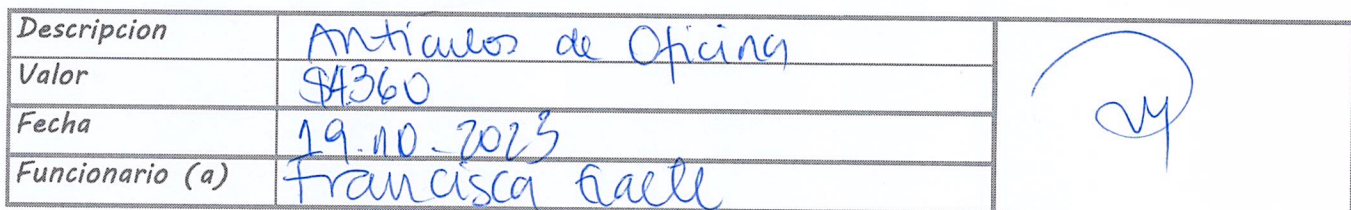 Descripcion Artículos de Oficina
Valor $4360
Fecha 19.10.2023
Funcionario (a) Francisca Gaete